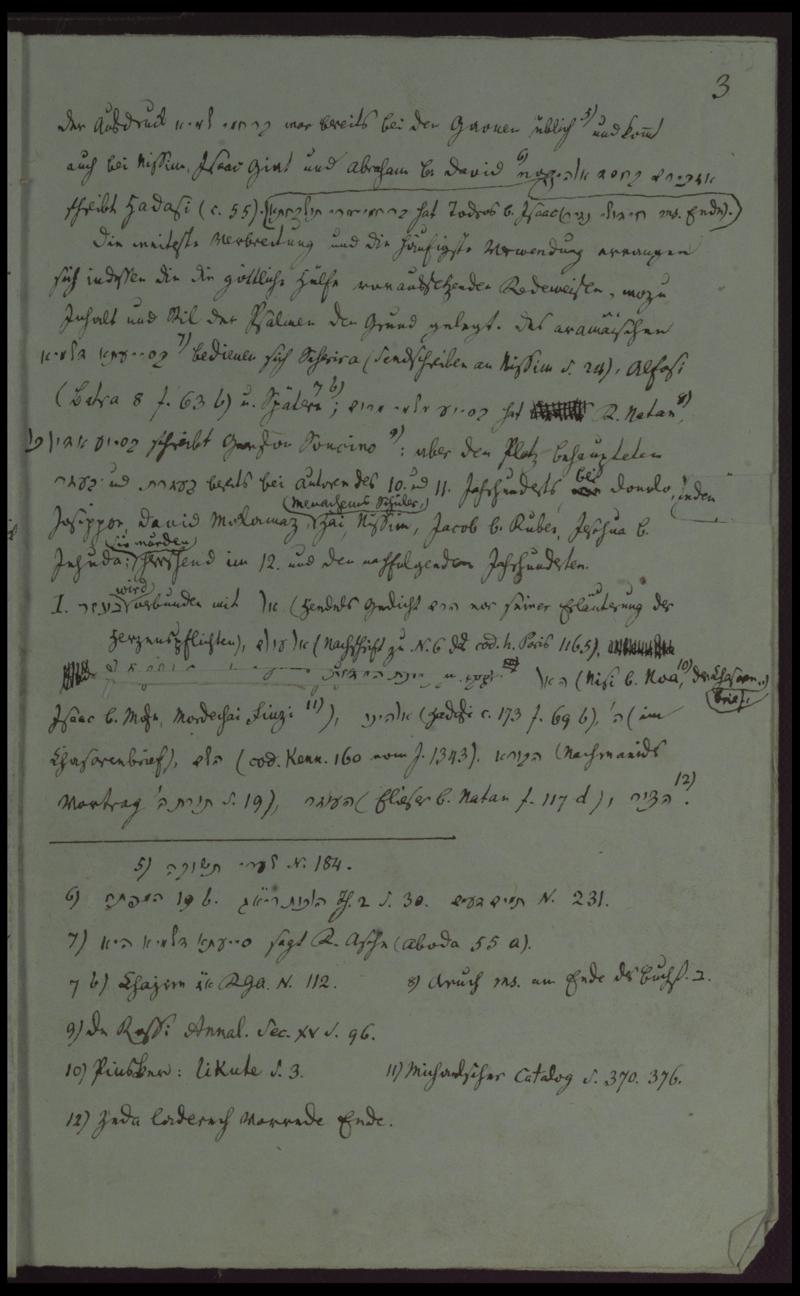 3
der Ausdruck קרחמי שמיא war bereits bei den Gaonen üblich 5) und kommt
auch bei Nissim, Isaac Giat und Abraham b. David 6)
schreibt Hadasi (c. 55). hat Todros b. Isaac ms. Ende).)
Die weiteste Verbreitung und die häufigste Verwendung errangen
sich indessen die die göttliche Hülfe voraussetzenden Redeweisen, wozu
Inhalt und Stil der Psalmen den Grund gelegt. Des aramäischen
בסייעתא דשמיא 7) bedienen sich Scherira (Sendschreiben an Nissim S. 24), Alfasi
(Batra 8 f. 63 b) u. Spätere 7 b); hat R. Natan 8),
schreibt Gerson Soncino 9): aber den Platz behaupteten
und בעזרת bereits bei Autoren des 10. und 11. Jahrhunderts bei Donolo, in den
Josippon, David Mokamaz, (Menachems Schüler,) Hai, Nissim, Jacob b. Ruben, Jeschua b.
Jehuda: (sie wurden) herrschend im 12. und den nachfolgenden Jahrhunderten.
I. בעזר wird verbunden mit אל (Gedicht vor seiner Erläuterung der
Herzenspflichten), (Nachschrift zu N. 6 des cod. h. Paris 1165),
האל (Nisi b. Noa, 10) der Chasaren-
brief,
Isaac b. Mose, Mordechai Finzi 11)), אלהינו (Hadasi c. 173 f. 69 b), ה' (im
Chasarenbrief), השם (cod. Kenn. 160 vom J. 1343), הבורא (Nachmanids
Vortrag תורת ה' S. 19), העוזר (Elieser b. Natan f. 117 d), 12).
5) שערי תשובה N. 184.
6) המפתח 19 b. הלכות ריא"ג Th. 2 S. 30. תמים דעים N. 231.
7) סייעתא דשמיא היא sagt R. Asche (Aboda 55 a).
7 b) RGA. N. 112. 8) Aruch ms. am Ende des Buchst. ב.
9) De Rossi Annal. Sec. XV S. 96.
10) Pinsker: Likute S. 3. 11) Michaelscher Catalog S. 370. 376.
12) Zeda laderech Vorrede Ende.